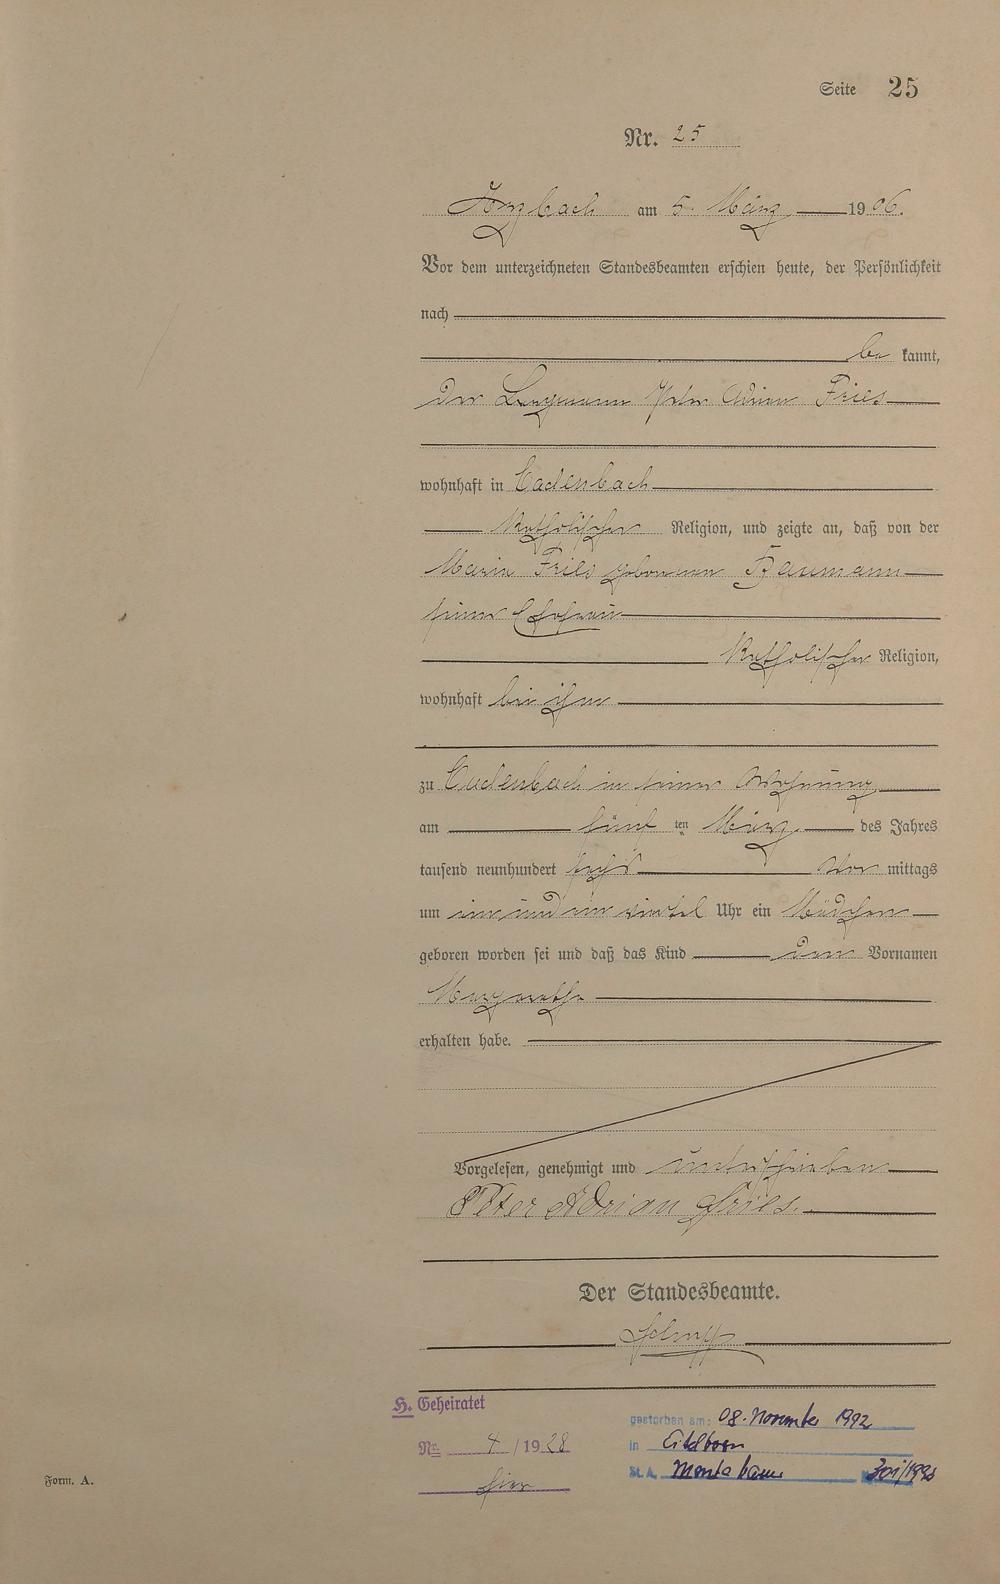 Seite 25
Nr. 25
Arzbach am 5. März 1906.
Vor dem unterzeichneten Standesbeamten erschien heute, der Persönlichkeit
nach
be kannt,
der Bergmann Peter Adrian Fries
wohnhaft in Cadenbach
katholischer Religion, und zeigte an, daß von der
Maria Fries geborenen Baumann
seiner Ehefrau
katholischer Religion,
wohnhaft bei ihm
zu Cadenbach in seiner Wohnung
am fünf ten März des Jahres
tausend neunhundert sechs Vor mittags
um ein und ein viertel Uhr ein Mädchen
geboren worden sei und daß das Kind den Vornamen
Margaretha
erhalten habe.
Vorgelesen, genehmigt und unterschrieben
Peter Adrian Fries.
Der Standesbeamte.
H. Geheiratet
Nr. 4 / 1928
hier
gestorben am: 08. November 1992
in Eitelborn
St.A. Montabaur 301/1992
Form. A.